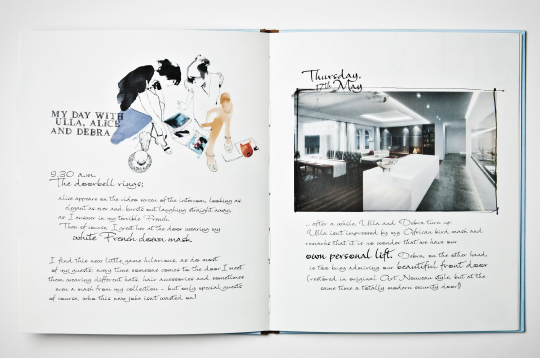 MY DAY WITH
ULLA, ALICE
AND DEBRA
9.30 a.m.
The doorbell rings;
alice appears on the video screen of the intercom, looking as
elegant as ever and bursts out laughing straight away,
as I answer in my terrible French.
Then of course, I greet her at the door wearing my
white French clown mask.
I find this new little game hilarious, as do most
of my guests: every time someone comes to the door I meet
them wearing different hats, hair accessories and sometimes
even a mask from my collection - but only special guests
of course, who this new joke isn't wasted on!
Thursday,
17th May
... after a while, Ulla and Debra turn up.
Ulla isn't impressed by my African bird mask and
remarks that it is no wonder that we have our
own personal lift. Debra, on the other hand,
is too busy admiring our beautiful front door
(restored in original Art Nouveau style, but at the
same time a totally modern security door!)